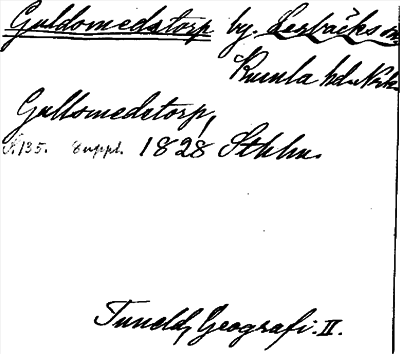 Guldsmedstorp by. Lerbäcks sn
Kumla hd. Nrk.
Gullsmedstorp,
S. 135. Suppl. 1828 Sthlm.
Tuneld, Geografi. II.